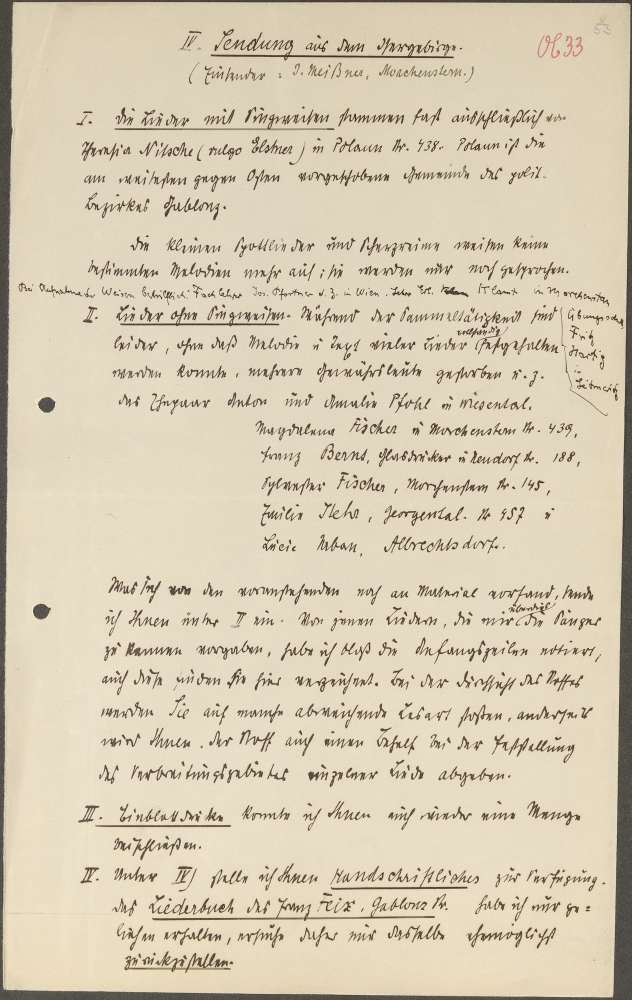 IV. Sendung aus dem Isergebirge.
Ob 33
52
(Einsender: J. Meißner, Morchenstern.)
I. Die Lieder mit Singweisen stammen fast ausschließlich von
Theresia Nitsche (vulgo Elstner) in Polaun Nr. 438. Polaun ist die
am weitesten gegen Osten vorgeschobene Gemeinde des polit.
Bezirkes Gablonz.
Die kleinen Spottlieder und Scherzreime weisen keine
bestimmten Melodien mehr auf; sie werden nur noch gesprochen.
Bei Aufnahme der Weisen behilflich: Fachlehrer Jos. Pfortner d. Z. in Wien, in Morchenstern
II. Lieder ohne Singweisen. Während der Sammeltätigkeit sind
leider, ohne daß Melodie u Text vieler Lieder vollständig festgehalten
werden konnte, mehrere Gewährsleute gestorben u. z.
das Ehepaar Anton und Amalie Pfohl in Wiesental.
Fritz
Hartig
in
Magdalena Fischer in Morchenstern Nr. 439,
Franz Bernt, Glasdrucker in Neudorf Nr. 188,
Sylvester Fischer, Morchenstern Nr. 145,
Emilie Stehr, Georgental. Nr 457 u
Lucie Urban, Albrechtsdorf.
Was sich von den voranstehenden noch an Material vorfand, sende
ich Ihnen unter II ein. Von jenen Liedern, die mir überdies die Sänger
zu kennen vorgaben, habe ich bloß die Anfangszeilen notiert,
auch diese finden Sie hier verzeichnet. Bei der Durchsicht des Stoffes
werden Sie auf manche abweichende Lesart stoßen, anderseits
wird Ihnen der Stoff auch einen Behelf bei der Feststellung
des Verbreitungsgebietes einzelner Lieder abgeben.
III. Einblattdrucke konnte ich Ihnen auch wieder eine Menge
beischließen.
IV. Unter IV) stelle ich Ihnen Handschriftliches zur Verfügung.
Das Liederbuch des Franz Feix, Gablonz habe ich nur ge=
liehen erhalten, ersuche daher mir dasselbe ehemöglichst
zurückzustellen.